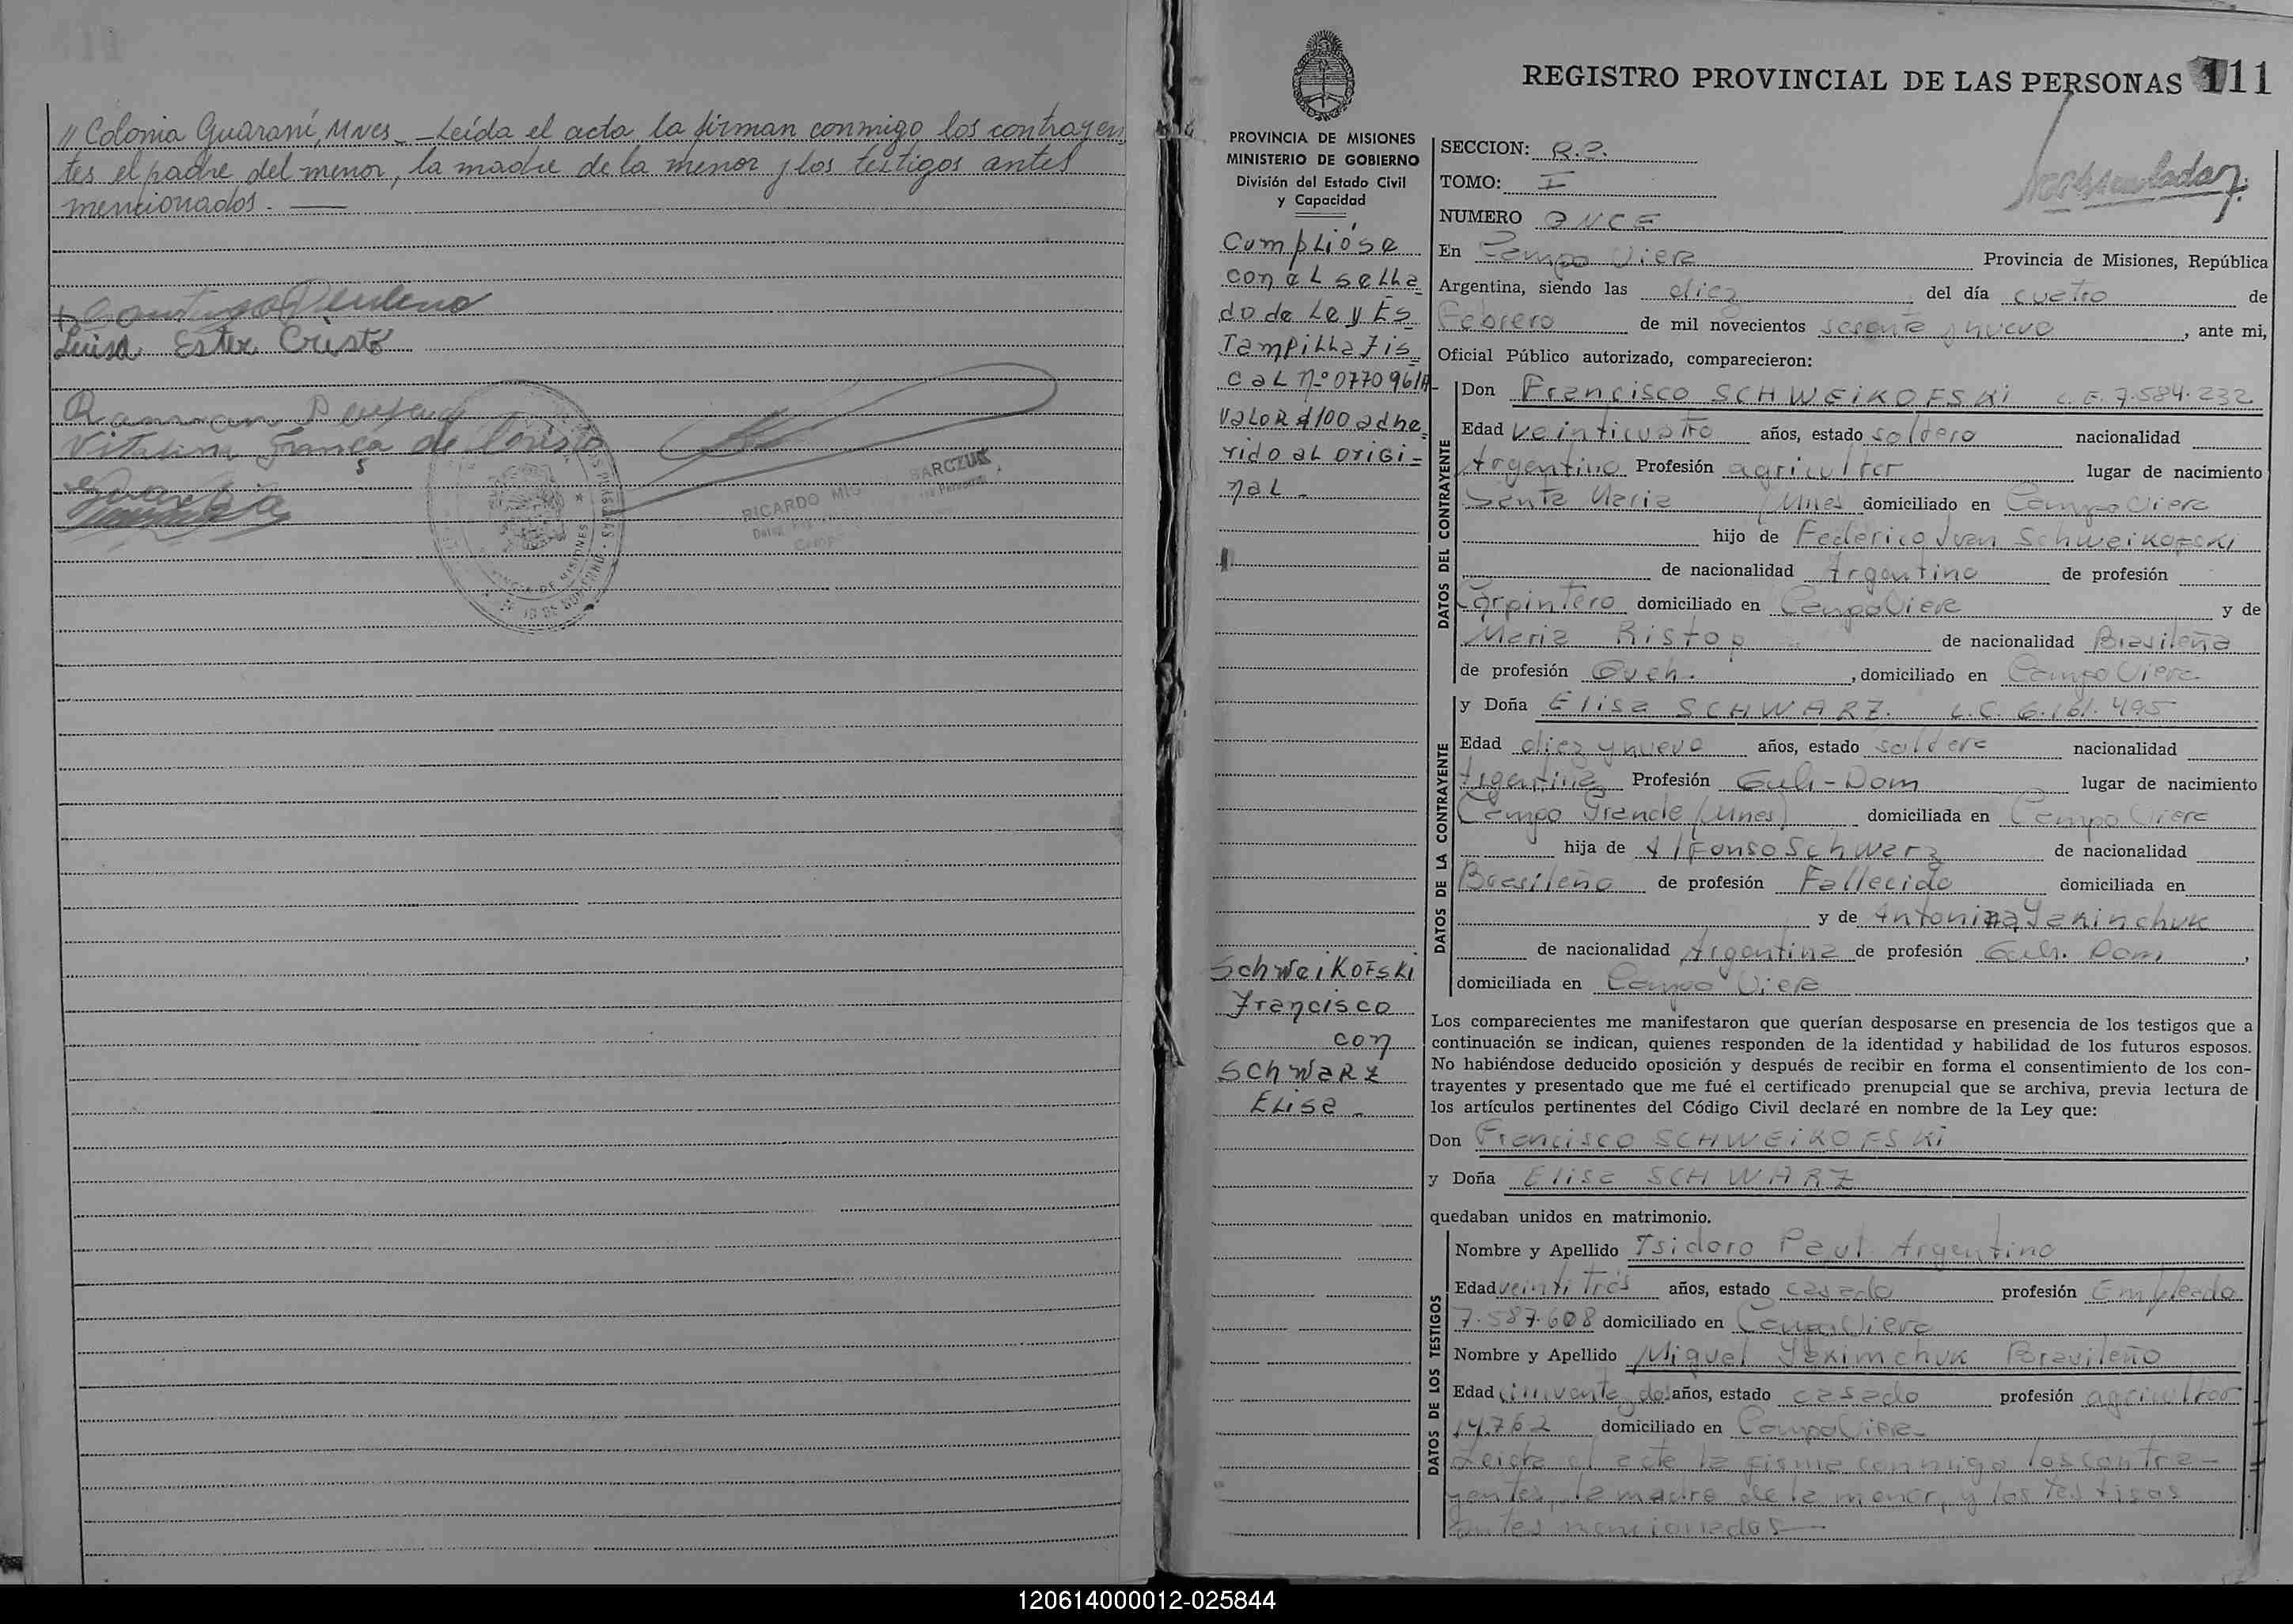 // Colonia Guaraní, Mnes.- Leída el acta, la firman conmigo los contrayen
tes el padre del menor, la madre de la menor y los testigos antes
mencionados. —
Luisa Ester Cristo
de Cristo
RICARDO
PROVINCIA DE MISIONES
REGISTRO PROVINCIAL DE LAS PERSONAS 111
PROVINCIA DE MISIONES
MINISTERIO DE GOBIERNO
División del Estado Civil
y Capacidad
Cumplióse
con el sella
do de Ley Es
Tampilla Fis
cal Nº 077096/A
valor $100 adhe
rido al origi-
nal -
Schweikofski
Francisco
con
Schwarz
Elisa -
SECCION: R.P.
TOMO: I
NUMERO ONCE
En Campo Viera Provincia de Misiones, República
Argentina, siendo las diez del día cuatro de
Febrero de mil novecientos sesenta y nueve, ante mi,
Oficial Público autorizado, comparecieron:
DATOS DEL CONTRAYENTE
Don Francisco SCHWEIKOFSKI L.E. 7.584.232
Edad veinticuatro años, estado soltero nacionalidad
Argentino Profesión agricultor lugar de nacimiento
Santa Maria (Mnes domiciliado en Campo Viera
hijo de Federico Ivan Schweikofski
de nacionalidad Argentino de profesión
Carpintero domiciliado en Campo Viera y de
Maria Ristop de nacionalidad Brasileña
de profesión Queh. , domiciliado en Campo Viera
DATOS DE LA CONTRAYENTE
y Doña Elisa SCHWARZ. L.C. 6.161.495
Edad diez y nueve años, estado soltera nacionalidad
Argentina Profesión Queh-Dom lugar de nacimiento
Campo Grande (Mnes) domiciliada en Campo Viera
hija de Alfonso Schwarz de nacionalidad
Brasileño de profesión Fallecido domiciliada en
y de Antonina Yakinchuk
de nacionalidad Argentina de profesión Queh. Dom ,
domiciliada en Campo Viera
Los comparecientes me manifestaron que querían desposarse en presencia de los testigos que a
continuación se indican, quienes responden de la identidad y habilidad de los futuros esposos.
No habiéndose deducido oposición y después de recibir en forma el consentimiento de los con-
trayentes y presentado que me fué el certificado prenupcial que se archiva, previa lectura de
los artículos pertinentes del Código Civil declaré en nombre de la Ley que:
Don Francisco SCHWEIKOFSKI
y Doña Elisa SCHWARZ
quedaban unidos en matrimonio.
DATOS DE LOS TESTIGOS
Nombre y Apellido Isidoro Paul Argentino
Edad veinti trés años, estado casado profesión Empleado
7.587.608 domiciliado en Campo Viera
Nombre y Apellido Miguel Yakimchuk Brasileño
Edad cincuenta y dos años, estado casado profesión agricultor
14.762 domiciliado en Campo Viera
Leida el acta la firma conmigo los contra-
yentes, la madre de la menor, y los testigos
antes mencionados—
120614000012-025844